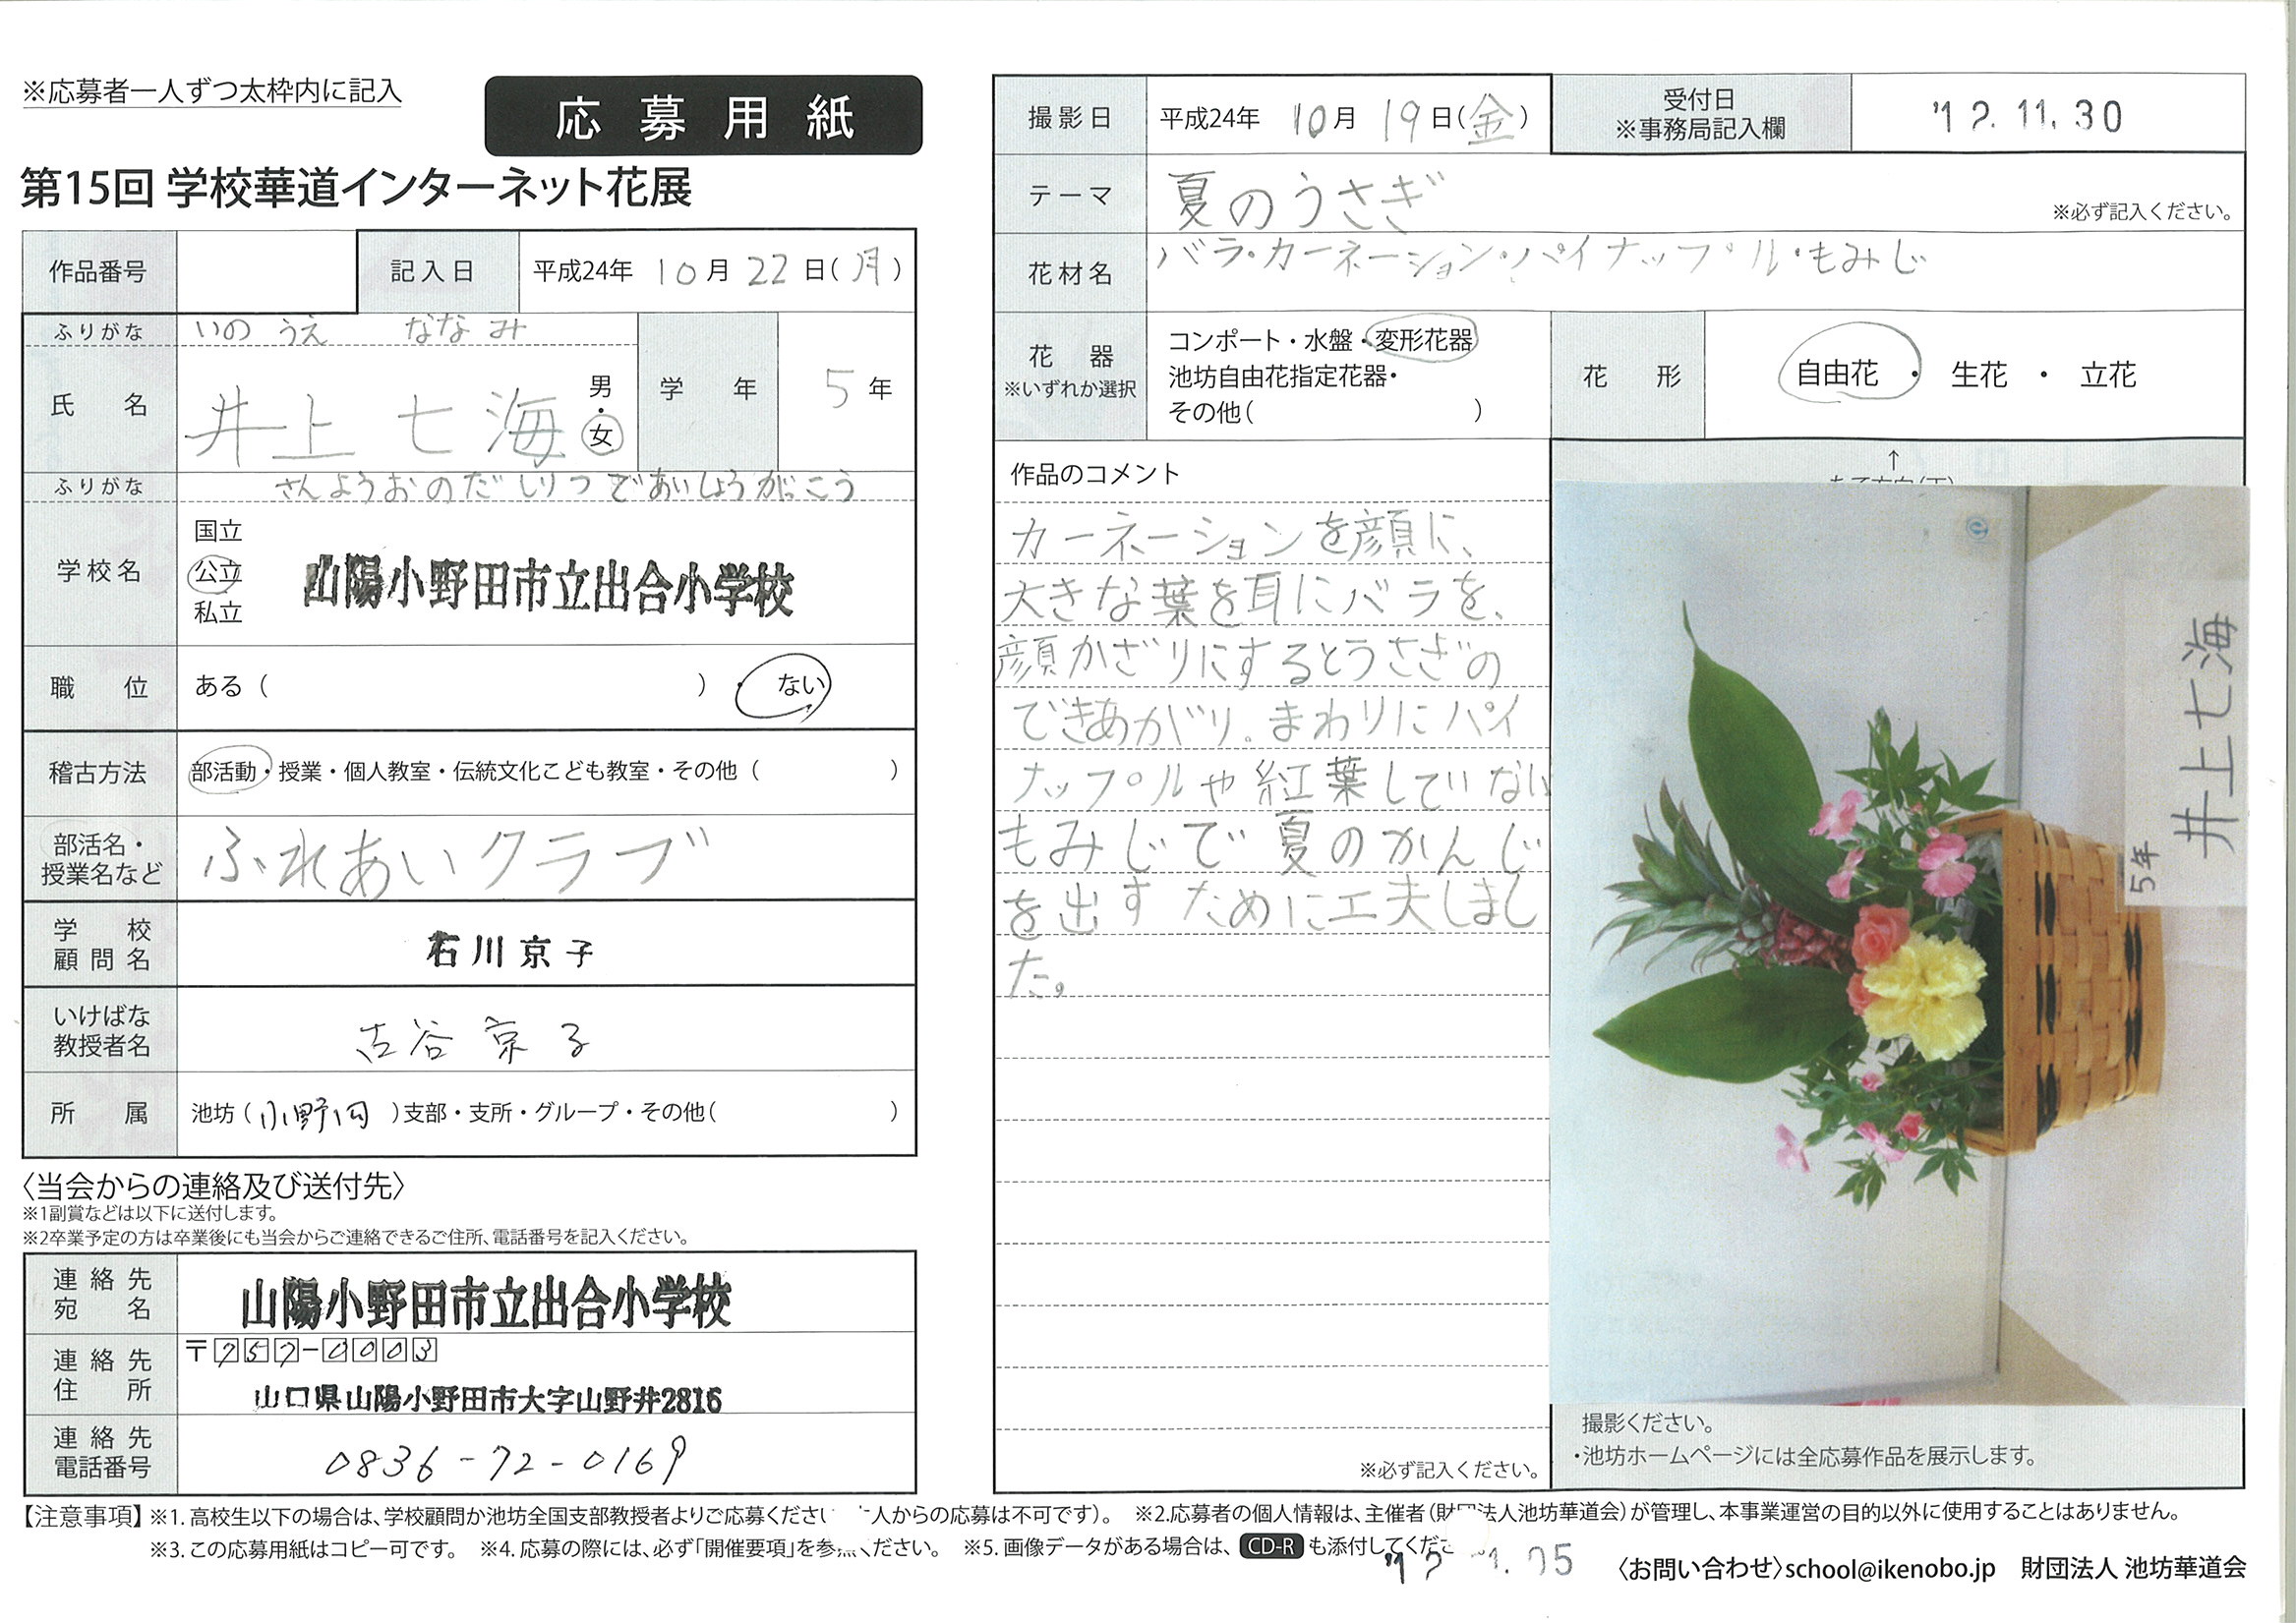 ※応募者一人ずつ太枠内に記入
応募用紙
第15回 学校華道インターネット花展
作品番号
記入日 平成24年 10月 22日(月)
ふりがな いのうえ ななみ
氏名 井上 七海 男・女
学年 5年
ふりがな さんようおのだしりつであいしょうがっこう
学校名 国立 公立 私立
山陽小野田市立出合小学校
職位 ある( ) ・ ない
稽古方法 部活動・授業・個人教室・伝統文化こども教室・その他( )
部活名・授業名など ふれあいクラブ
学校顧問名 石川京子
いけばな教授者名 古谷京子
所属 池坊(小野田)支部・支所・グループ・その他( )
〈当会からの連絡及び送付先〉
※1副賞などは以下に送付します。
※2卒業予定の方は卒業後にも当会からご連絡できるご住所、電話番号を記入ください。
連絡先宛名 山陽小野田市立出合小学校
連絡先住所 〒757-0003
山口県山陽小野田市大字山野井2816
連絡先電話番号 0836-72-0169
撮影日 平成24年 10月 19日(金)
受付日 ※事務局記入欄 '12.11.30
テーマ 夏のうさぎ
※必ず記入ください。
花材名 バラ・カーネーション・パイナップル・もみじ
花器 ※いずれか選択
コンポート・水盤・変形花器
池坊自由花指定花器・
その他( )
花形 自由花 ・ 生花 ・ 立花
作品のコメント
カーネーションを顔に、
大きな葉を耳にバラを、
顔かざりにするとうさぎの
できあがり。まわりにパイ
ナップルや紅葉していない
もみじで夏のかんじ
を出すために工夫しまし
た。
※必ず記入ください。
↑
5年
井上七海
撮影ください。
・池坊ホームページには全応募作品を展示します。
【注意事項】※1. 高校生以下の場合は、学校顧問か池坊全国支部教授者よりご応募ください 人からの応募は不可です)。 ※2.応募者の個人情報は、主催者(財団法人池坊華道会)が管理し、本事業運営の目的以外に使用することはありません。
※3. この応募用紙はコピー可です。 ※4. 応募の際には、必ず「開催要項」を参照ください。 ※5. 画像データがある場合は、CD-Rも添付してくだ
〈お問い合わせ〉school@ikenobo.jp 財団法人 池坊華道会